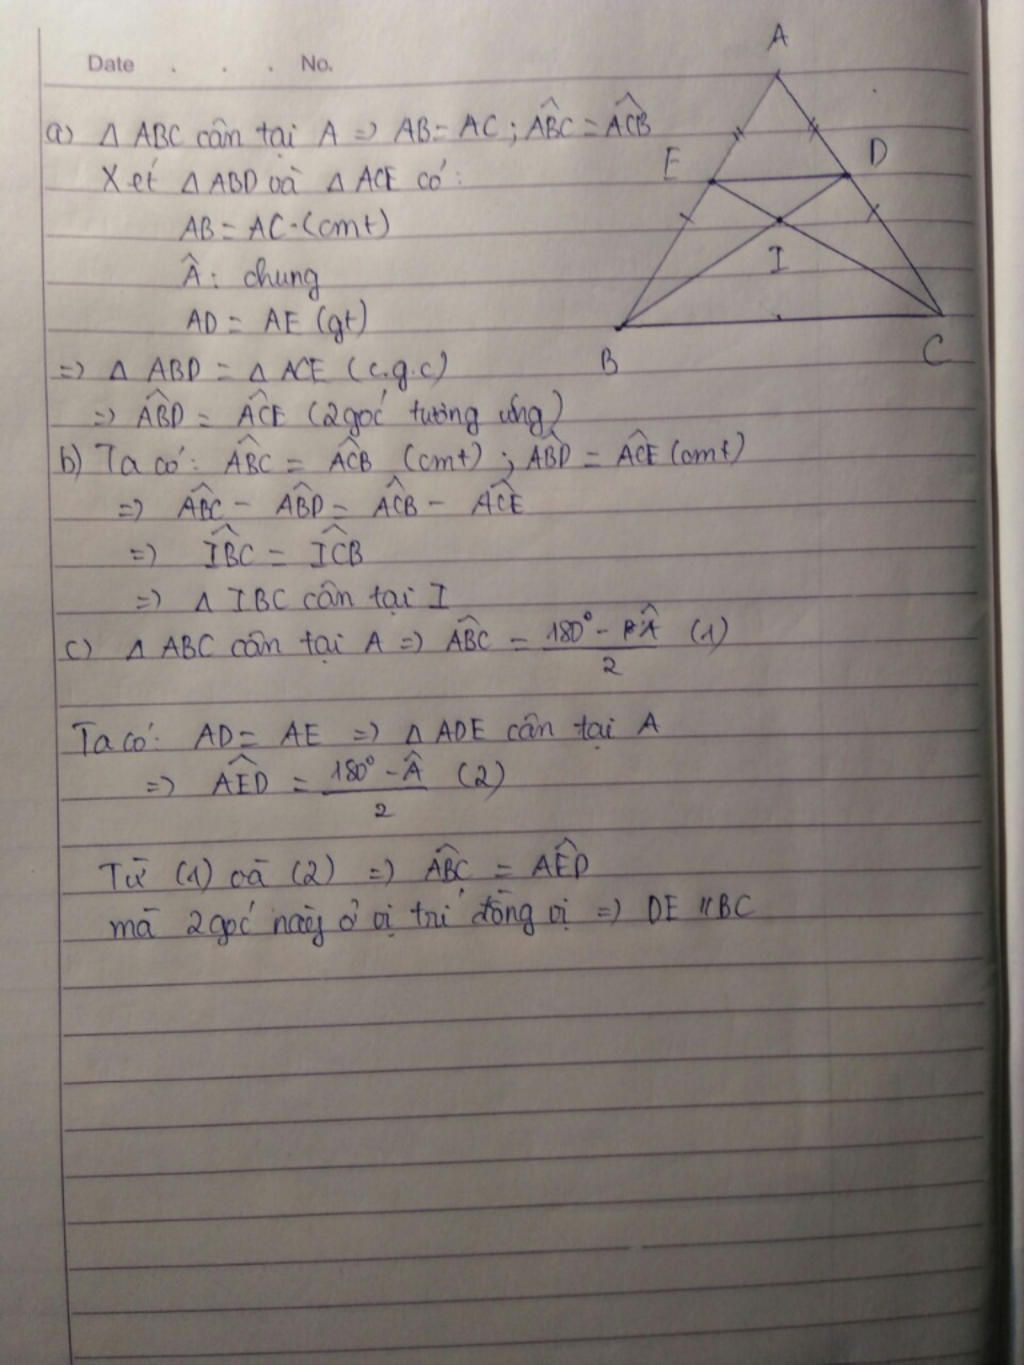 Date . . . No.
a) Δ ABC cân tại A => AB = AC ; \widehat{ABC} = \widehat{ACB}
Xét Δ ABD và Δ ACE có:
AB = AC (cmt)
\widehat{A}: chung
AD = AE (gt)
=> Δ ABD = Δ ACE (c.g.c)
=> \widehat{ABD} = \widehat{ACE} (2 góc tương ứng)
b) Ta có: \widehat{ABC} = \widehat{ACB} (cmt) ; \widehat{ABD} = \widehat{ACE} (cmt)
=> \widehat{ABC} - \widehat{ABD} = \widehat{ACB} - \widehat{ACE}
=> \widehat{IBC} = \widehat{ICB}
=> Δ IBC cân tại I
c) Δ ABC cân tại A => \widehat{ABC} = \frac{180° - \widehat{A}}{2} (1)
Ta có: AD = AE => Δ ADE cân tại A
=> \widehat{AED} = \frac{180° - \widehat{A}}{2} (2)
Từ (1) và (2) => \widehat{ABC} = \widehat{AED}
mà 2 góc này ở vị trí đồng vị => DE // BC
A
E
D
I
B
C